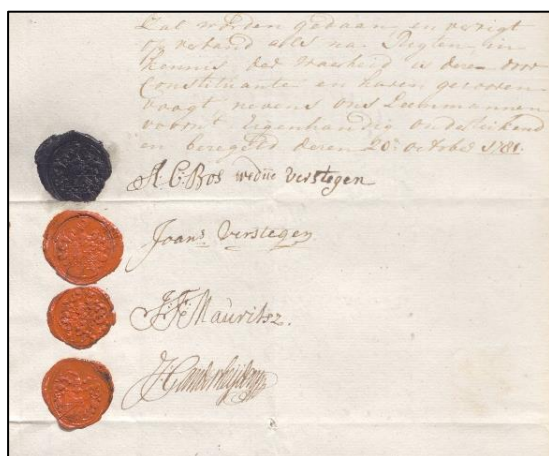 Zal worden gedaan en verrigt
en verband als na Regten in
kennis der Waarheid is deze door
Constituante en haren gecooren
voogt nevens ons Leenmannen
voorn^t Eigenhandig onderteikend
en bezegeld dezen 20^e october 1781.
A C Bos weduе Verstegen
Joan^s Verstegen
J F Mauritsz.